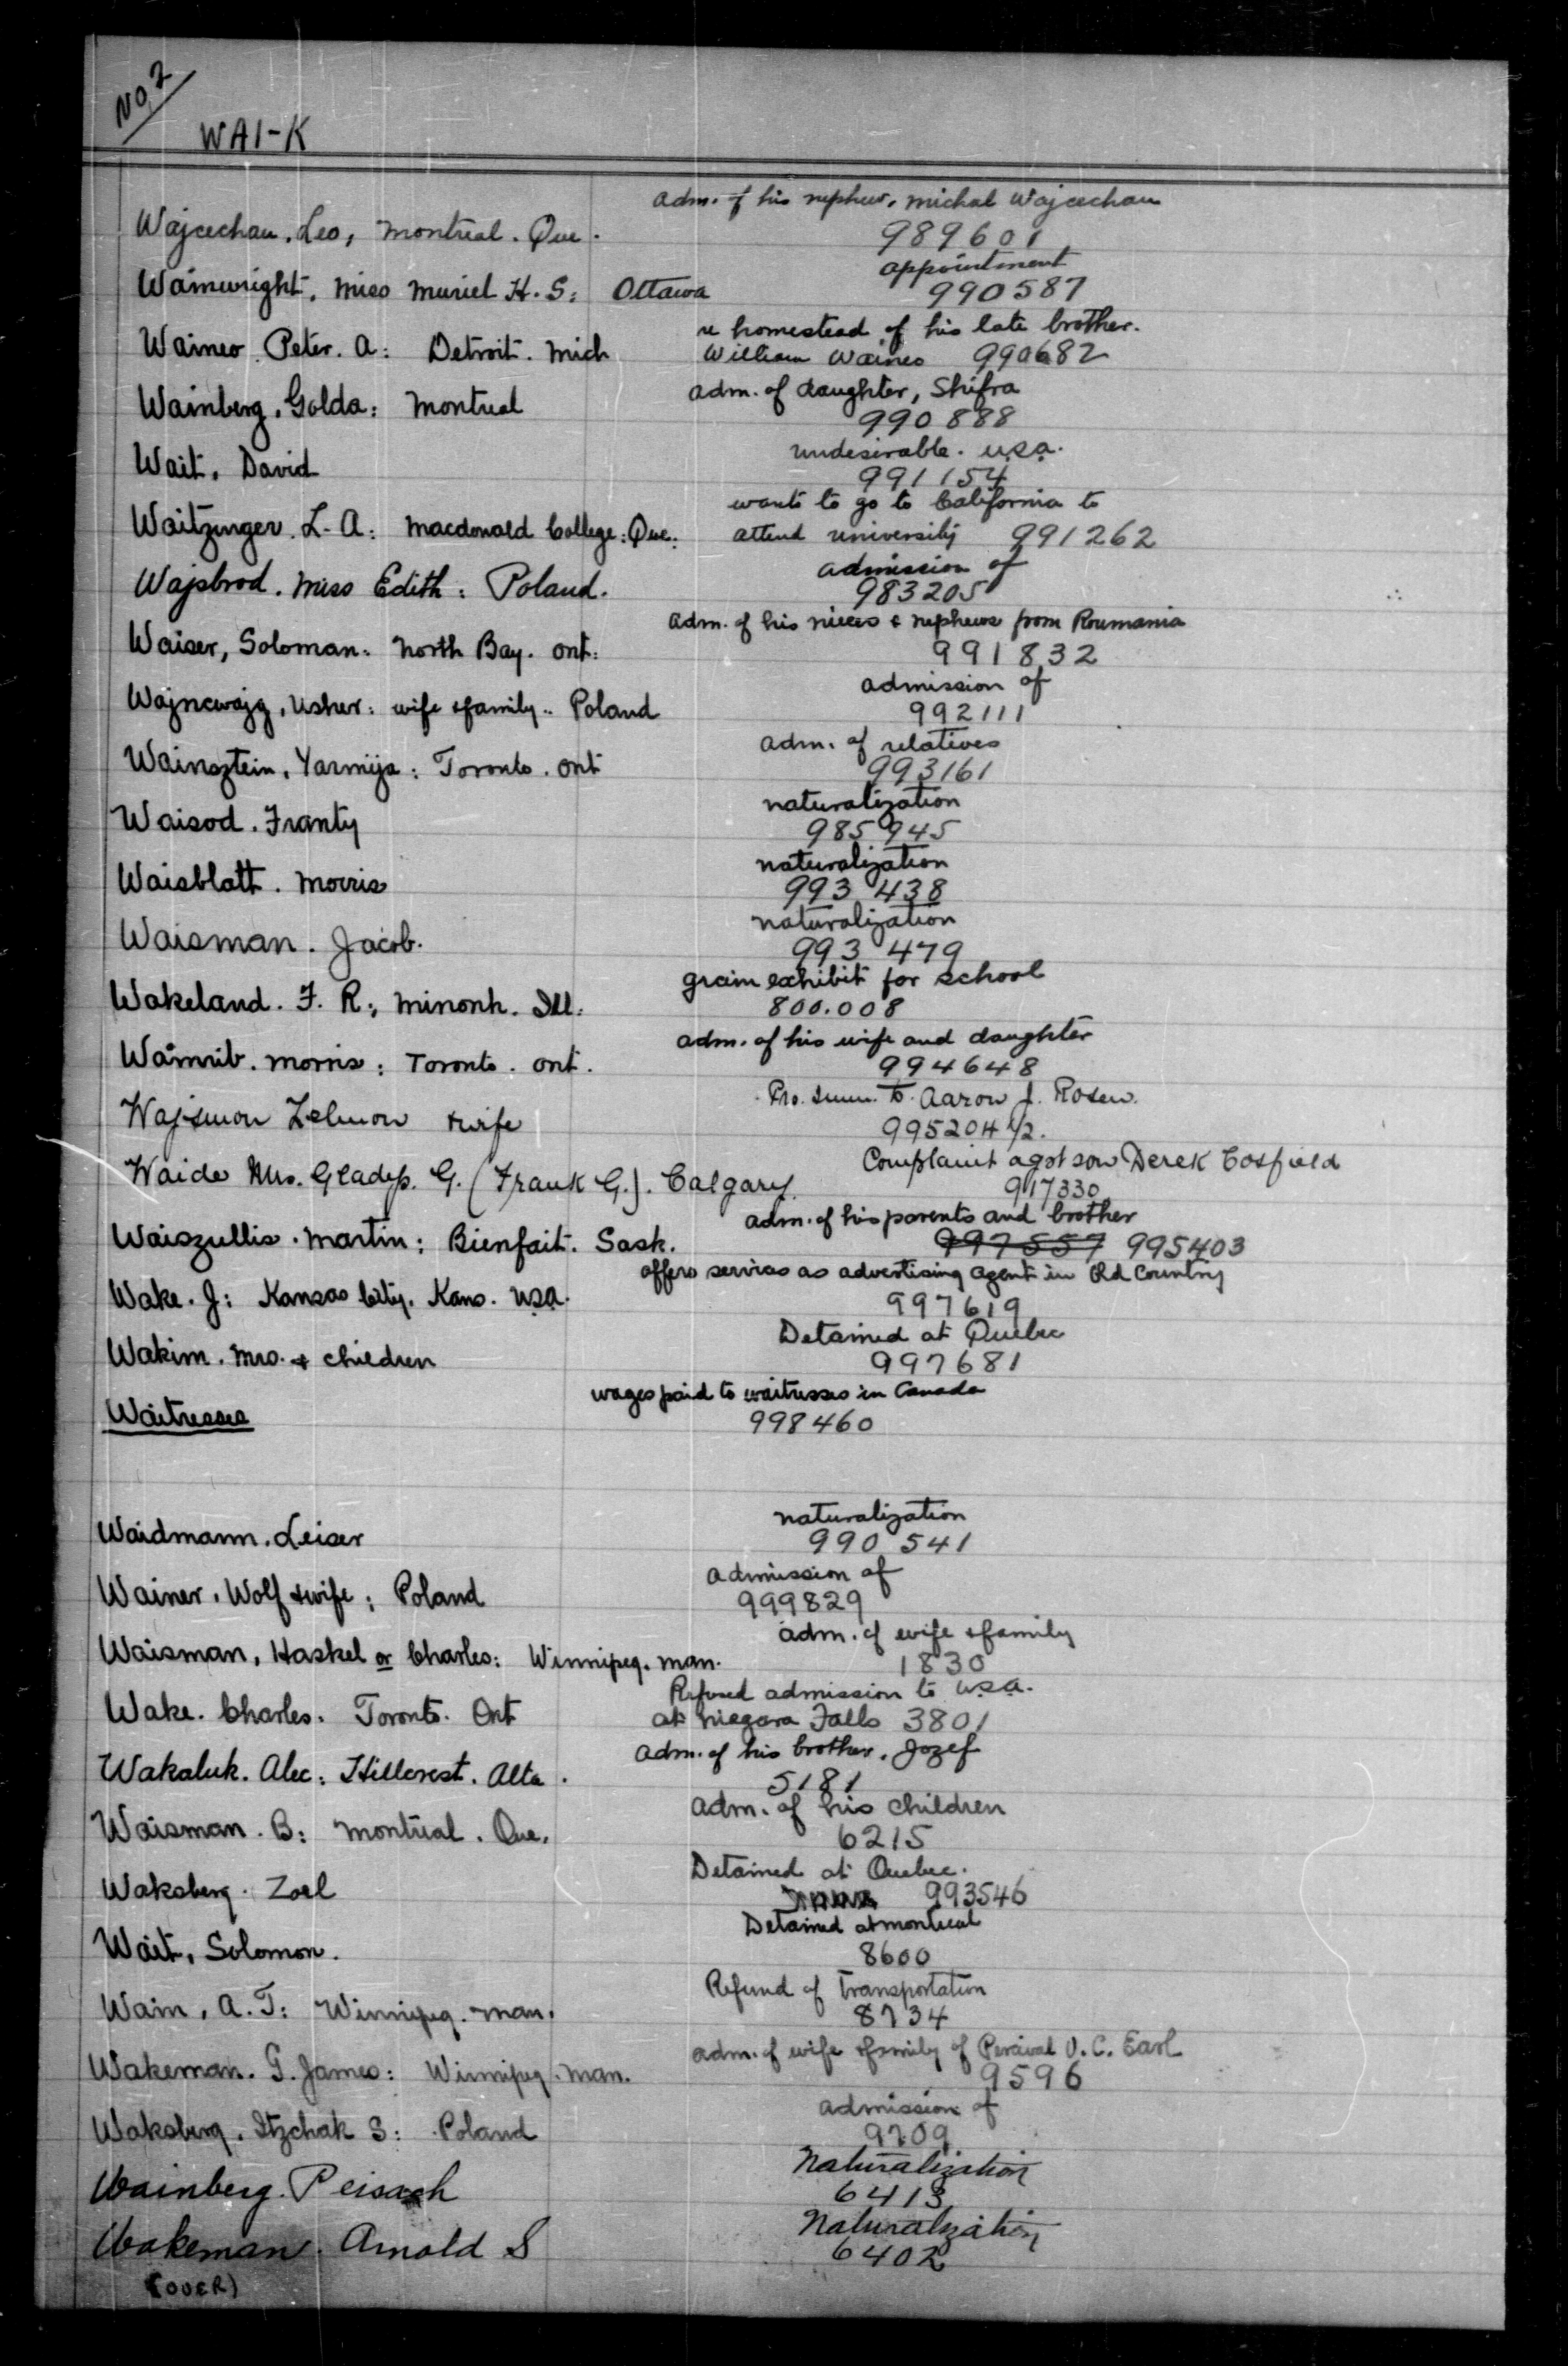 No 2
WAI-K
adm. of his nephew, Michal Wajcechau
Wajcechau, Leo, Montreal. Que.
989601
appointment
Wainwright, Miss Muriel H. S: Ottawa
990587
re homestead of his late brother.
Waines Peter. A: Detroit. Mich
William Waines 990682
adm. of daughter, Shifra
Wainberg, Golda: Montreal
990888
undesirable. U.S.A.
Wait, David
991154
wants to go to California to
Waitzinger. L. A: Macdonald College: Que:
attend university 991262
admission of
Wajsbrod. Miss Edith: Poland.
983205
adm. of his nieces & nephews from Roumania
Waiser, Soloman: North Bay. Ont:
991832
admission of
Wajncwajg, Usher: wife & family.. Poland
992111
adm. of relatives
Wainsztein, Yarmija: Toronto. Ont
993161
naturalization
Waisod. Franty
985945
naturalization
Waisblatt. Morris
993 438
naturalization
Waisman. Jacob.
993 479
grain exhibit for school
Wakeland. F. R; Minonk. Ill:
800.008
adm. of his wife and daughter
Wainrib. Morris: Toronto. Ont.
994648
to Aaron J. Rosen.
& wife
995204 1/2.
Complaint agst son Derek Cosfield
Waide Mrs. Gladys. G. (Frank G.). Calgary.
917330
adm. of his parents and brother
Waiszullis. Martin: Bienfait. Sask.
997557 995403
offers services as advertising agent in Old Country
Wake. J: Kansas City. Kans. U.S.A.
997619
Detained at Quebec
Wakim. Mrs. & children
997681
wages paid to waitresses in Canada
Waitresses
998460
naturalization
Waidmann. Leiser
990 541
admission of
Wainer, Wolf & wife; Poland
999829
adm. of wife & family
Waisman, Haskel or Charles: Winnipeg. Man.
1830
Refused admission to U.S.A.
Wake. Charles. Toronto. Ont
at Niagara Falls 3801
adm. of his brother, Jozef
Wakaluk. Alec: Hillcrest. Alta.
5181
adm. of his children
Waisman. B: Montreal. Que.
6215
Detained at Quebec.
Waksberg. Zoel
993546
Detained at Montreal
Wait, Solomon.
8600
Refund of Transportation
Wain, A. T: Winnipeg. Man.
8734
adm. of wife & family of Percival V. C. Earl
Wakeman. G. James: Winnipeg. Man.
9596
admission of
Waksberg, Itzchak S: Poland
9709
Naturalization
Wainberg. Peisach
6413
Naturalization
Wakeman. Arnold S
6402
(OVER)